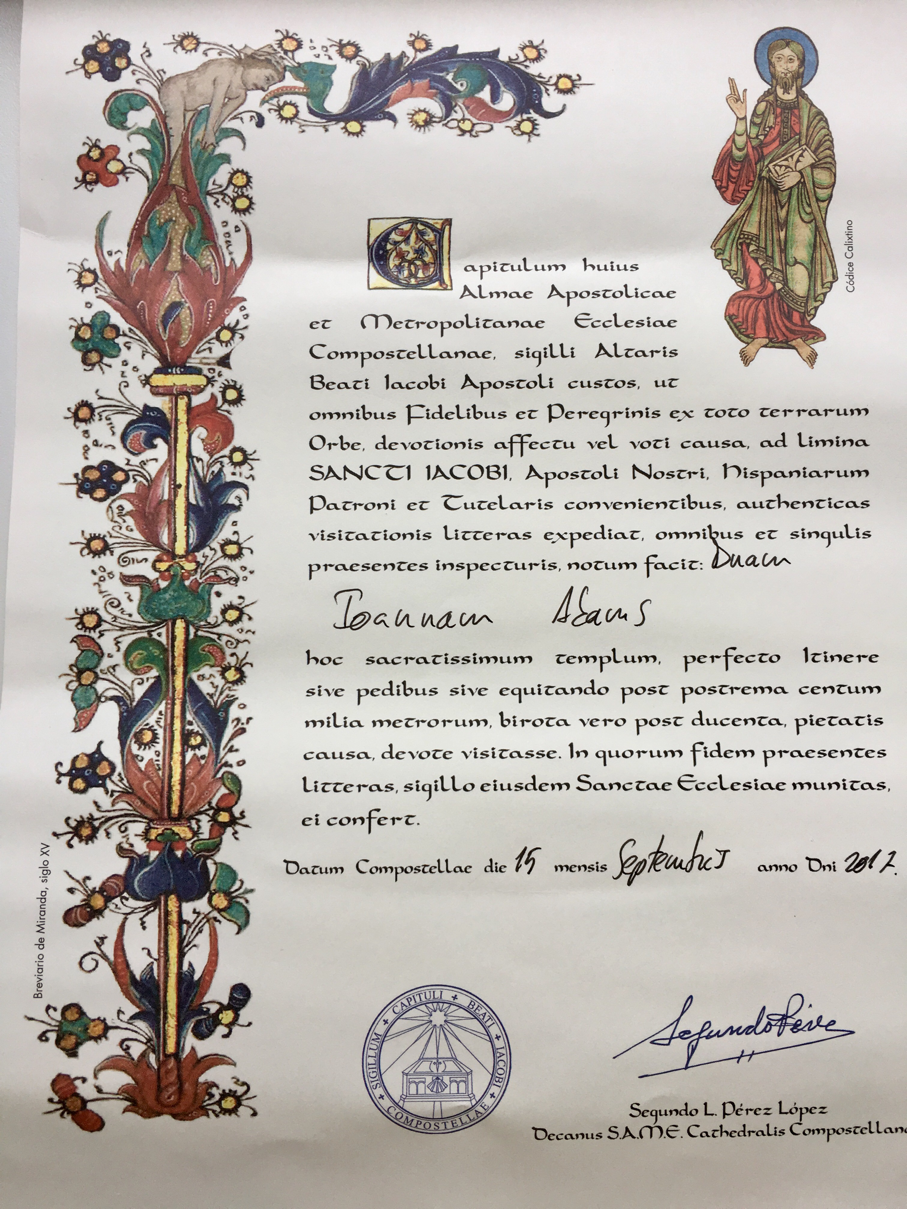 Códice Calixtino
Capitulum huius
Almae Apostolicae
et Metropolitanae Ecclesiae
Compostellanae, sigilli Altaris
Beati Iacobi Apostoli custos, ut
omnibus Fidelibus et Peregrinis ex toto terrarum
Orbe, devotionis affectu vel voti causa, ad limina
SANCTI IACOBI, Apostoli Nostri, Hispaniarum
Patroni et Tutelaris convenientibus, authenticas
visitationis litteras expediat, omnibus et singulis
praesentes inspecturis, notum facit: Dnam
Ioannam Adams
hoc sacratissimum templum, perfecto Itinere
sive pedibus sive equitando post postrema centum
milia metrorum, birota vero post ducenta, pietatis
causa, devote visitasse. In quorum fidem praesentes
litteras, sigillo eiusdem Sanctae Ecclesiae munitas,
ei confert.
Datum Compostellae die 15 mensis Septembris anno Dni 2017.
Breviario de Miranda, siglo XV
SIGILLUM + CAPITULI + BEATI + IACOBI + COMPOSTELLAE +
Segundo Pérez
Segundo L. Pérez López
Decanus S.A.M.E. Cathedralis Compostellan